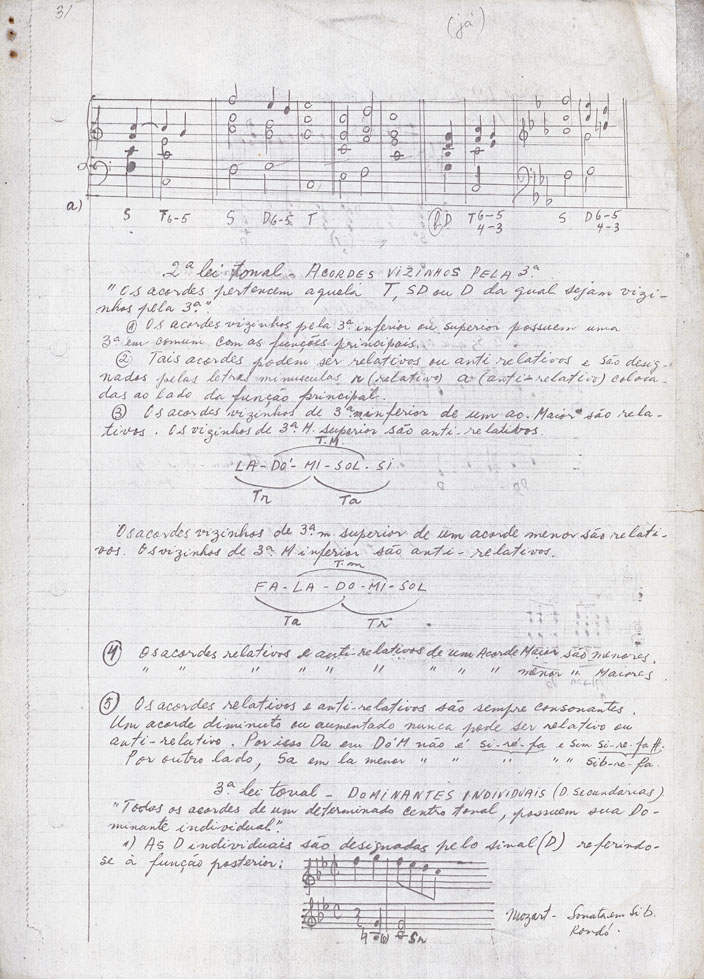 3/
(já)
a) S T6-5 S D6-5 T b) D T6-5 4-3 S D6-5 4-3
2ª lei tonal - ACORDES VIZINHOS PELA 3ª
"Os acordes pertencem aquela T, SD ou D da qual sejam vizi-
nhos pela 3ª".
① Os acordes vizinhos pela 3ª inferior ou superior possuem uma
3ª em comum com as funções principais.
② Tais acordes podem ser relativos ou anti relativos e são desig-
nados pelas letras minusculas r (relativo) a (anti-relativo) coloca-
das ao lado da função principal.
③ Os acordes vizinhos de 3ª m inferior de um ac. Maior são rela-
tivos. Os vizinhos de 3ª M. superior são anti-relativos.
T.M
LA - DÓ - MI - SOL - SI
Tr Ta
Os acordes vizinhos de 3ª m superior de um acorde menor são relati-
vos. Os vizinhos de 3ª M inferior são anti-relativos.
T.m
FA - LA - DO - MI - SOL
Ta Tr
④ Os acordes relativos e anti-relativos de um Acorde Maior são menores.
" " " " " " " " " menor " Maiores
⑤ Os acordes relativos e anti-relativos são sempre consonantes.
Um acorde diminuto ou aumentado nunca pode ser relativo ou
anti-relativo. Por isso Da em DóM não é si-ré-fa e sim si-re-fa#.
Por outro lado, Sa em la menor " " " " " Sib-re-fa
3ª lei tonal - DOMINANTES INDIVIDUAIS (D. Secundarias)
"Todos os acordes de um determinado centro tonal, possuem sua Do-
minante individual".
a) As D individuais são designadas pelo sinal (D) referindo-
se à função posterior:
Mozart - Sonata em Sib.
Rondó.
(D) Sr